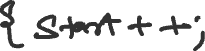 { Start ++;